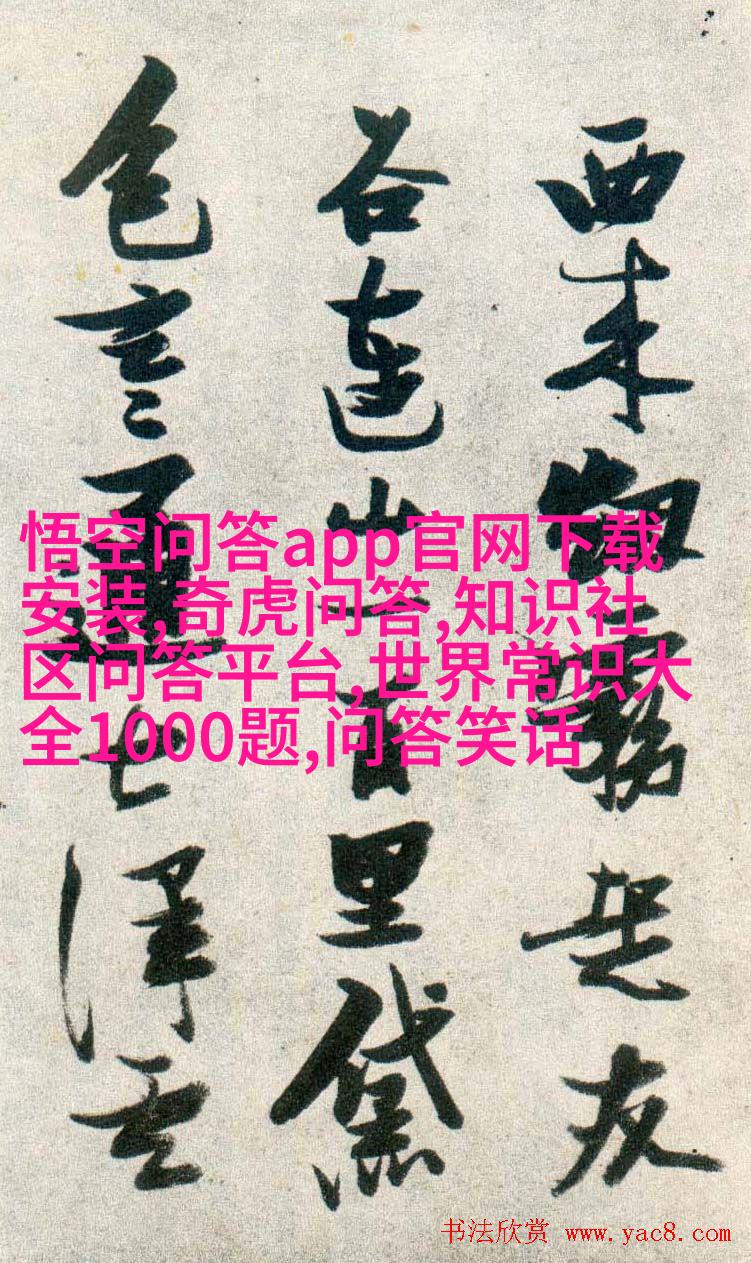 悟空问答app官网下载
安装,奇虎问答,知识社
区问答平台,世界常识大
全1000题,问答笑话
西来是友
谷連山百里黛
色言澤
书法欣赏 www.yac8.com